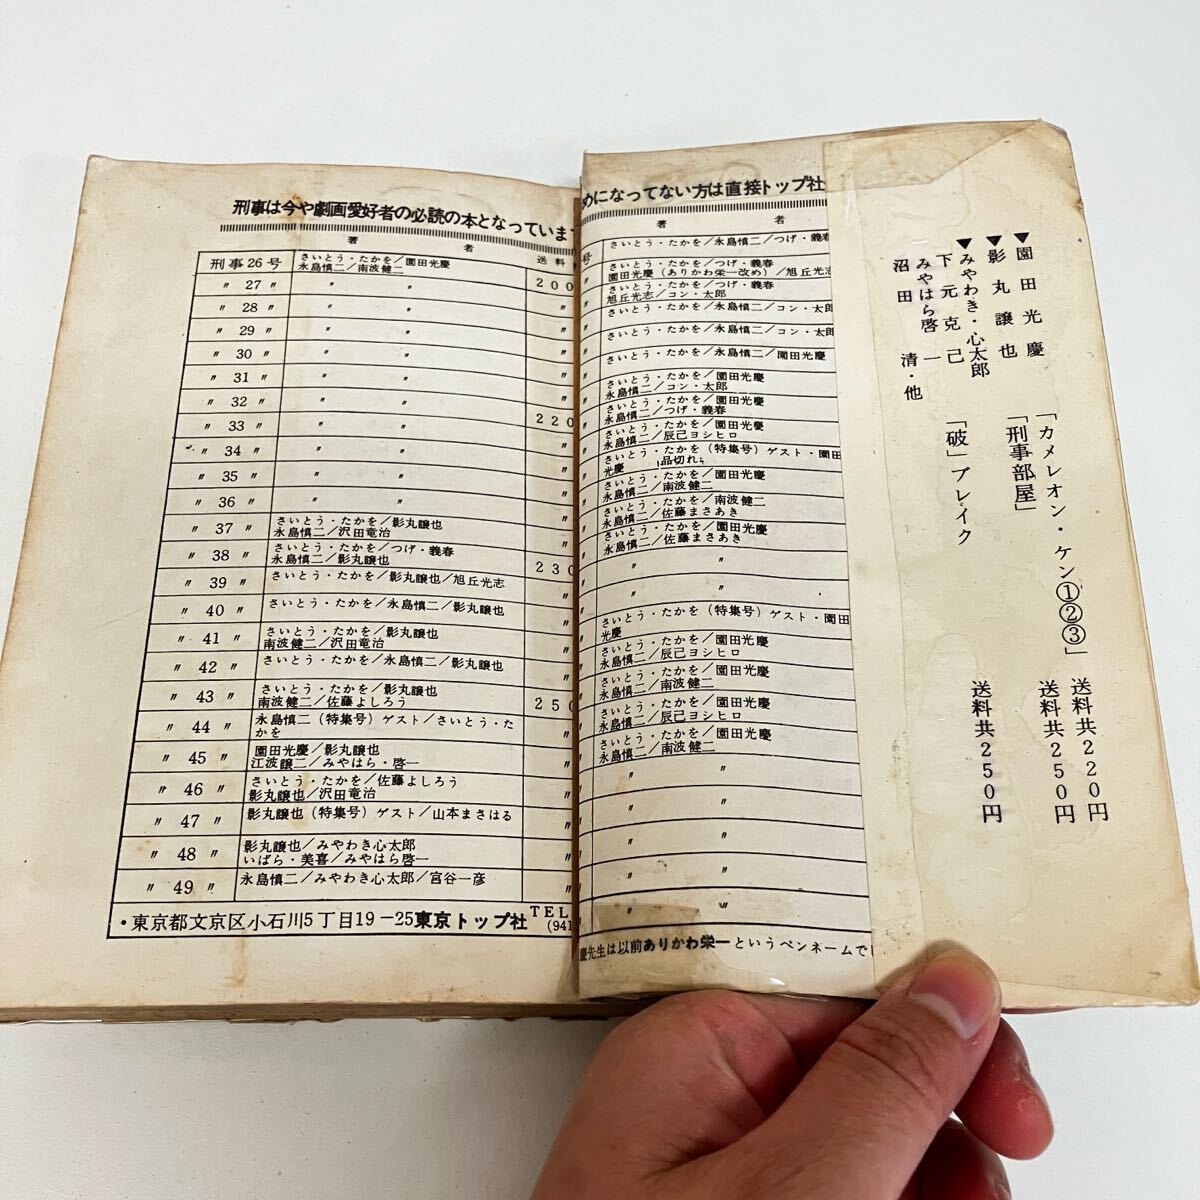 刑事は今や劇画愛好者の必読の本となっていま
著 者 送料
刑事26号 さいとう・たかを／園田光慶
永島慎二／南波健二
〃 27 〃 〃 〃 200
〃 28 〃 〃 〃 〃
〃 29 〃 〃 〃 〃
〃 30 〃 〃 〃 〃
〃 31 〃 〃 〃 〃
〃 32 〃 〃 〃 〃
〃 33 〃 〃 〃 220
〃 34 〃 〃 〃 〃
〃 35 〃 〃 〃 〃
〃 36 〃 〃 〃 〃
〃 37 〃 さいとう・たかを／影丸譲也
永島慎二／沢田竜治 〃
〃 38 〃 さいとう・たかを／つげ・義春
永島慎二／影丸譲也 230
〃 39 〃 さいとう・たかを／影丸譲也／旭丘光志 〃
〃 40 〃 さいとう・たかを／永島慎二／影丸譲也 〃
〃 41 〃 さいとう・たかを／影丸譲也
南波健二／沢田竜治 〃
〃 42 〃 さいとう・たかを／永島慎二／影丸譲也 〃
〃 43 〃 さいとう・たかを／影丸譲也
南波健二／佐藤よしろう 250
〃 44 〃 永島慎二（特集号）ゲスト／さいとう・た
かを 〃
〃 45 〃 園田光慶／影丸譲也
江波譲二／みやはら・啓一 〃
〃 46 〃 さいとう・たかを／佐藤よしろう
影丸譲也／沢田竜治 〃
〃 47 〃 影丸譲也（特集号）ゲスト／山本まさはる 〃
〃 48 〃 影丸譲也／みやわき心太郎
いばら・美喜／みやはら啓一 〃
〃 49 〃 永島慎二／みやわき心太郎／宮谷一彦 〃
・東京都文京区小石川5丁目19－25東京トップ社 TEL
(941
めになってない方は直接トップ社
著 者
号 さいとう・たかを／永島慎二／つげ・義春
〃 さいとう・たかを／つげ・義春
園田光慶（ありかわ栄一改め）／旭丘光志
〃 さいとう・たかを／つげ・義春
旭丘光志／コン・太郎
〃 さいとう・たかを／永島慎二／コン・太郎
〃 さいとう・たかを／永島慎二／コン・太郎
〃 さいとう・たかを／永島慎二／園田光慶
〃 さいとう・たかを／園田光慶
永島慎二／コン・太郎
〃 さいとう・たかを／園田光慶
永島慎二／つげ・義春
〃 さいとう・たかを／園田光慶
永島慎二／辰己ヨシヒロ
〃 さいとう・たかを（特集号）ゲスト・園田
光慶 品切れ
〃 さいとう・たかを／園田光慶
永島慎二／南波健二
〃 さいとう・たかを／南波健二
永島慎二／佐藤まさあき
〃 さいとう・たかを／園田光慶
永島慎二／佐藤まさあき
〃 〃 〃
〃 〃 〃
〃 さいとう・たかを（特集号）ゲスト・園田
光慶
〃 さいとう・たかを／園田光慶
永島慎二／辰己ヨシヒロ
〃 さいとう・たかを／園田光慶
永島慎二／南波健二
〃 さいとう・たかを／園田光慶
永島慎二／辰己ヨシヒロ
〃 さいとう・たかを／園田光慶
永島慎二／南波健二
〃 〃 〃
〃 〃 〃
〃 〃 〃
〃 〃 〃
〃 〃 〃
〃 〃 〃
慶先生は以前ありかわ栄一というペンネームで
▼園田光慶 「カメレオン・ケン①②③」 送料共220円
▼影丸譲也 「刑事部屋」 送料共250円
▼みやわき・心太郎
下元克己 「破」ブレイク 送料共250円
みやはら啓一
沼田清・他